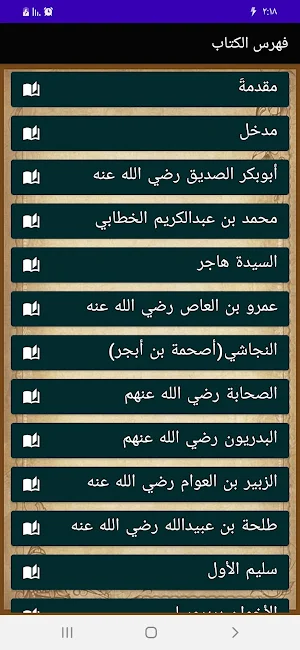 ٢:١٨
فهرس الكتاب
مقدمةً
مدخل
أبوبكر الصديق رضي الله عنه
محمد بن عبدالكريم الخطابي
السيدة هاجر
عمرو بن العاص رضي الله عنه
النجاشي(أصحمة بن أبجر)
الصحابة رضي الله عنهم
البدريون رضي الله عنهم
الزبير بن العوام رضي الله عنه
طلحة بن عبيدالله رضي الله عنه
سليم الأول